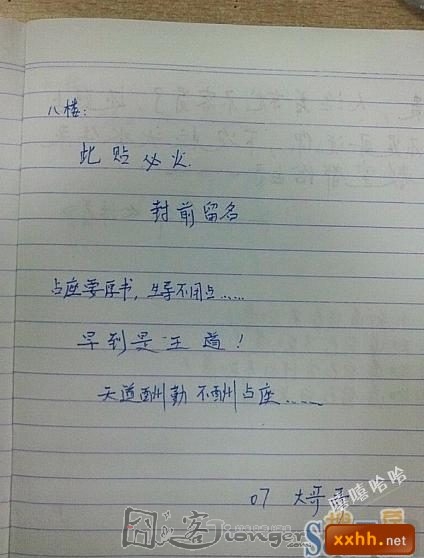 八楼:
此贴必火.
封前留名
占座要厚书, 书不闭点......
早到是王道!
天道酬勤 不酬占座......
07 大哥
嘻嘻哈哈
囧客
Jionger.com
xxhh.net